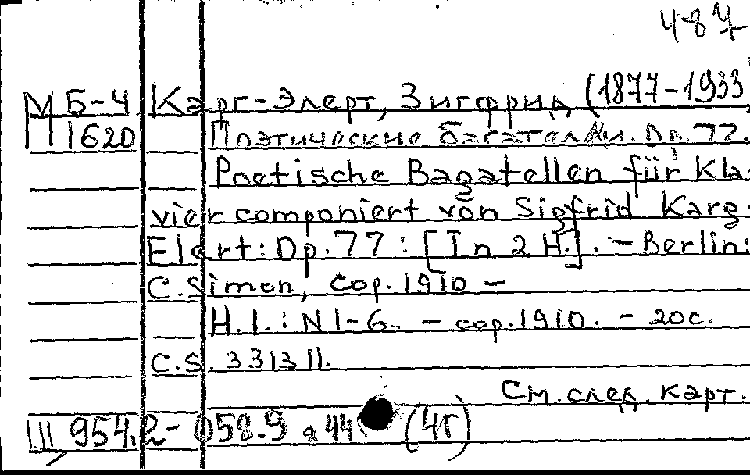 487
М Б-4 Карг-Элерт, Зигфрид (1877-1933
П 1620 Поэтические багатели. Op. 77.
Poetische Bagatellen für Kla-
vier componiert von Sigfrid Karg-
Elert: Op. 77: [In 2 H.]. - Berlin:
C. Simon, cop. 1910 -
H.1.: N 1-6. - cop. 1910. - 20c.
C.S. 3313 II.
См. след. карт.
Ш 954.2- 058.9 а 44 (4г)